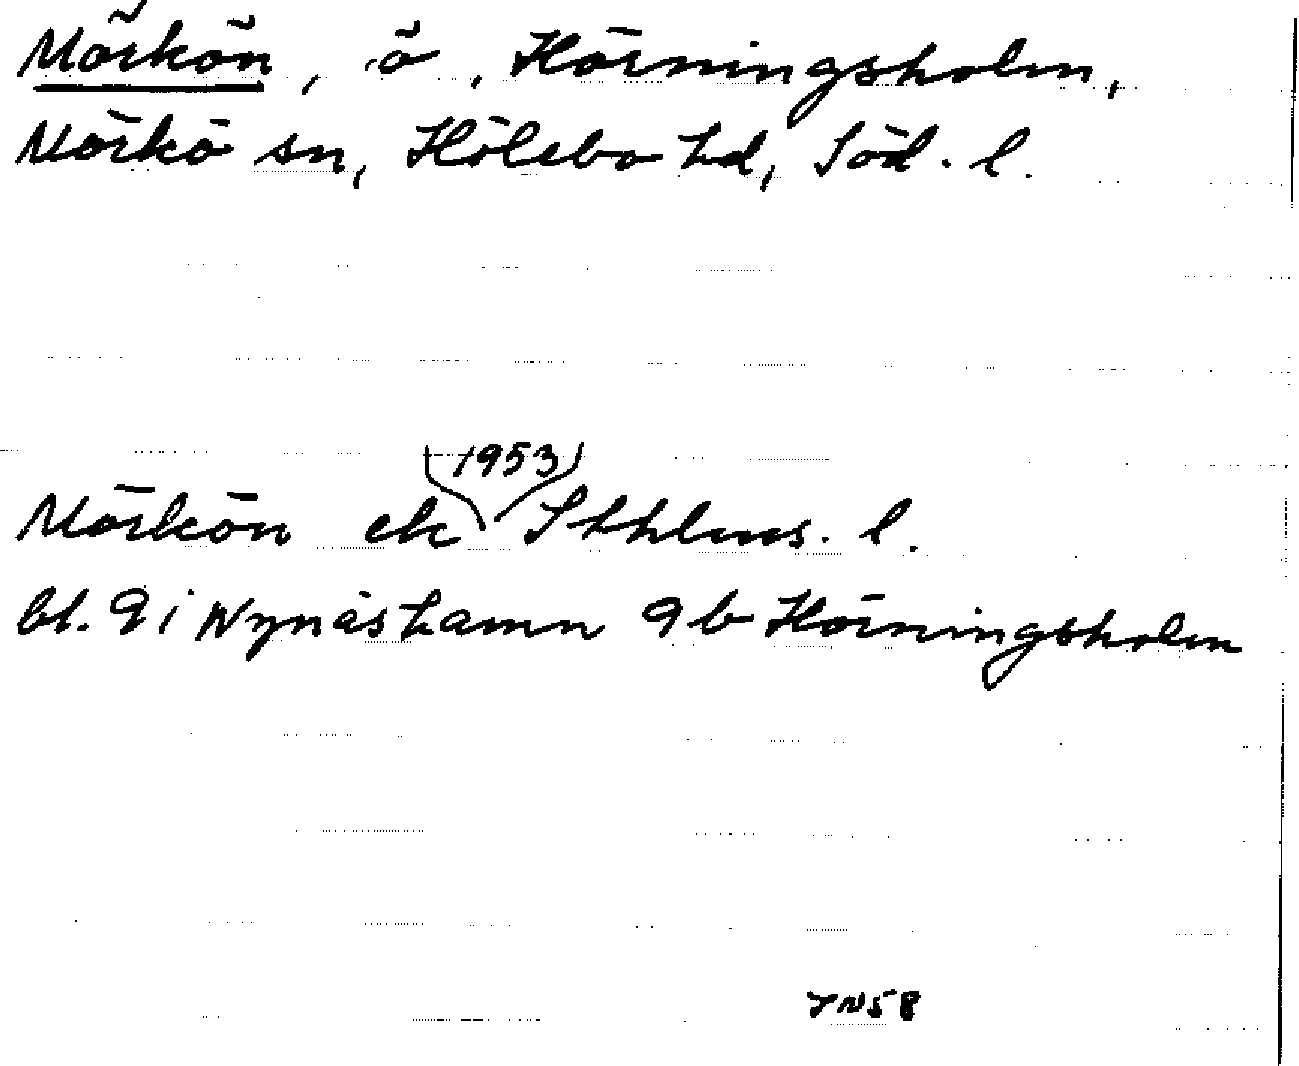 Mörkön, ö, Hörningsholm,
Mörkö sn, Hölebo hd, Söd. l.
(1953)
Mörkön ek Sthlms. l.
bl. 9 i Nynäshamn 9b Hörningsholm
YN58